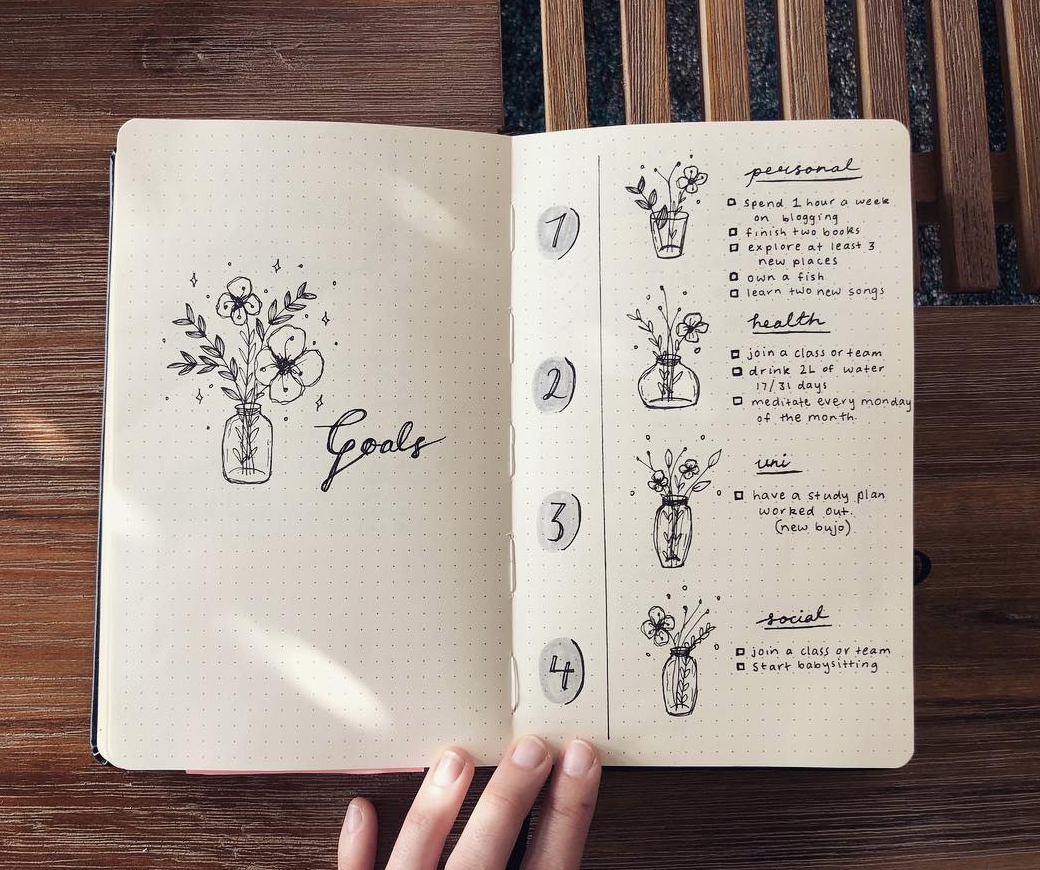 Goals
1
personal
spend 1 hour a week
on blogging
finish two books
explore at least 3
new places
own a fish
learn two new songs
2
health
join a class or team
drink 2L of water
17/31 days
meditate every monday
of the month.
3
uni
have a study plan
worked out.
(new bujo)
4
social
join a class or team
start babysitting